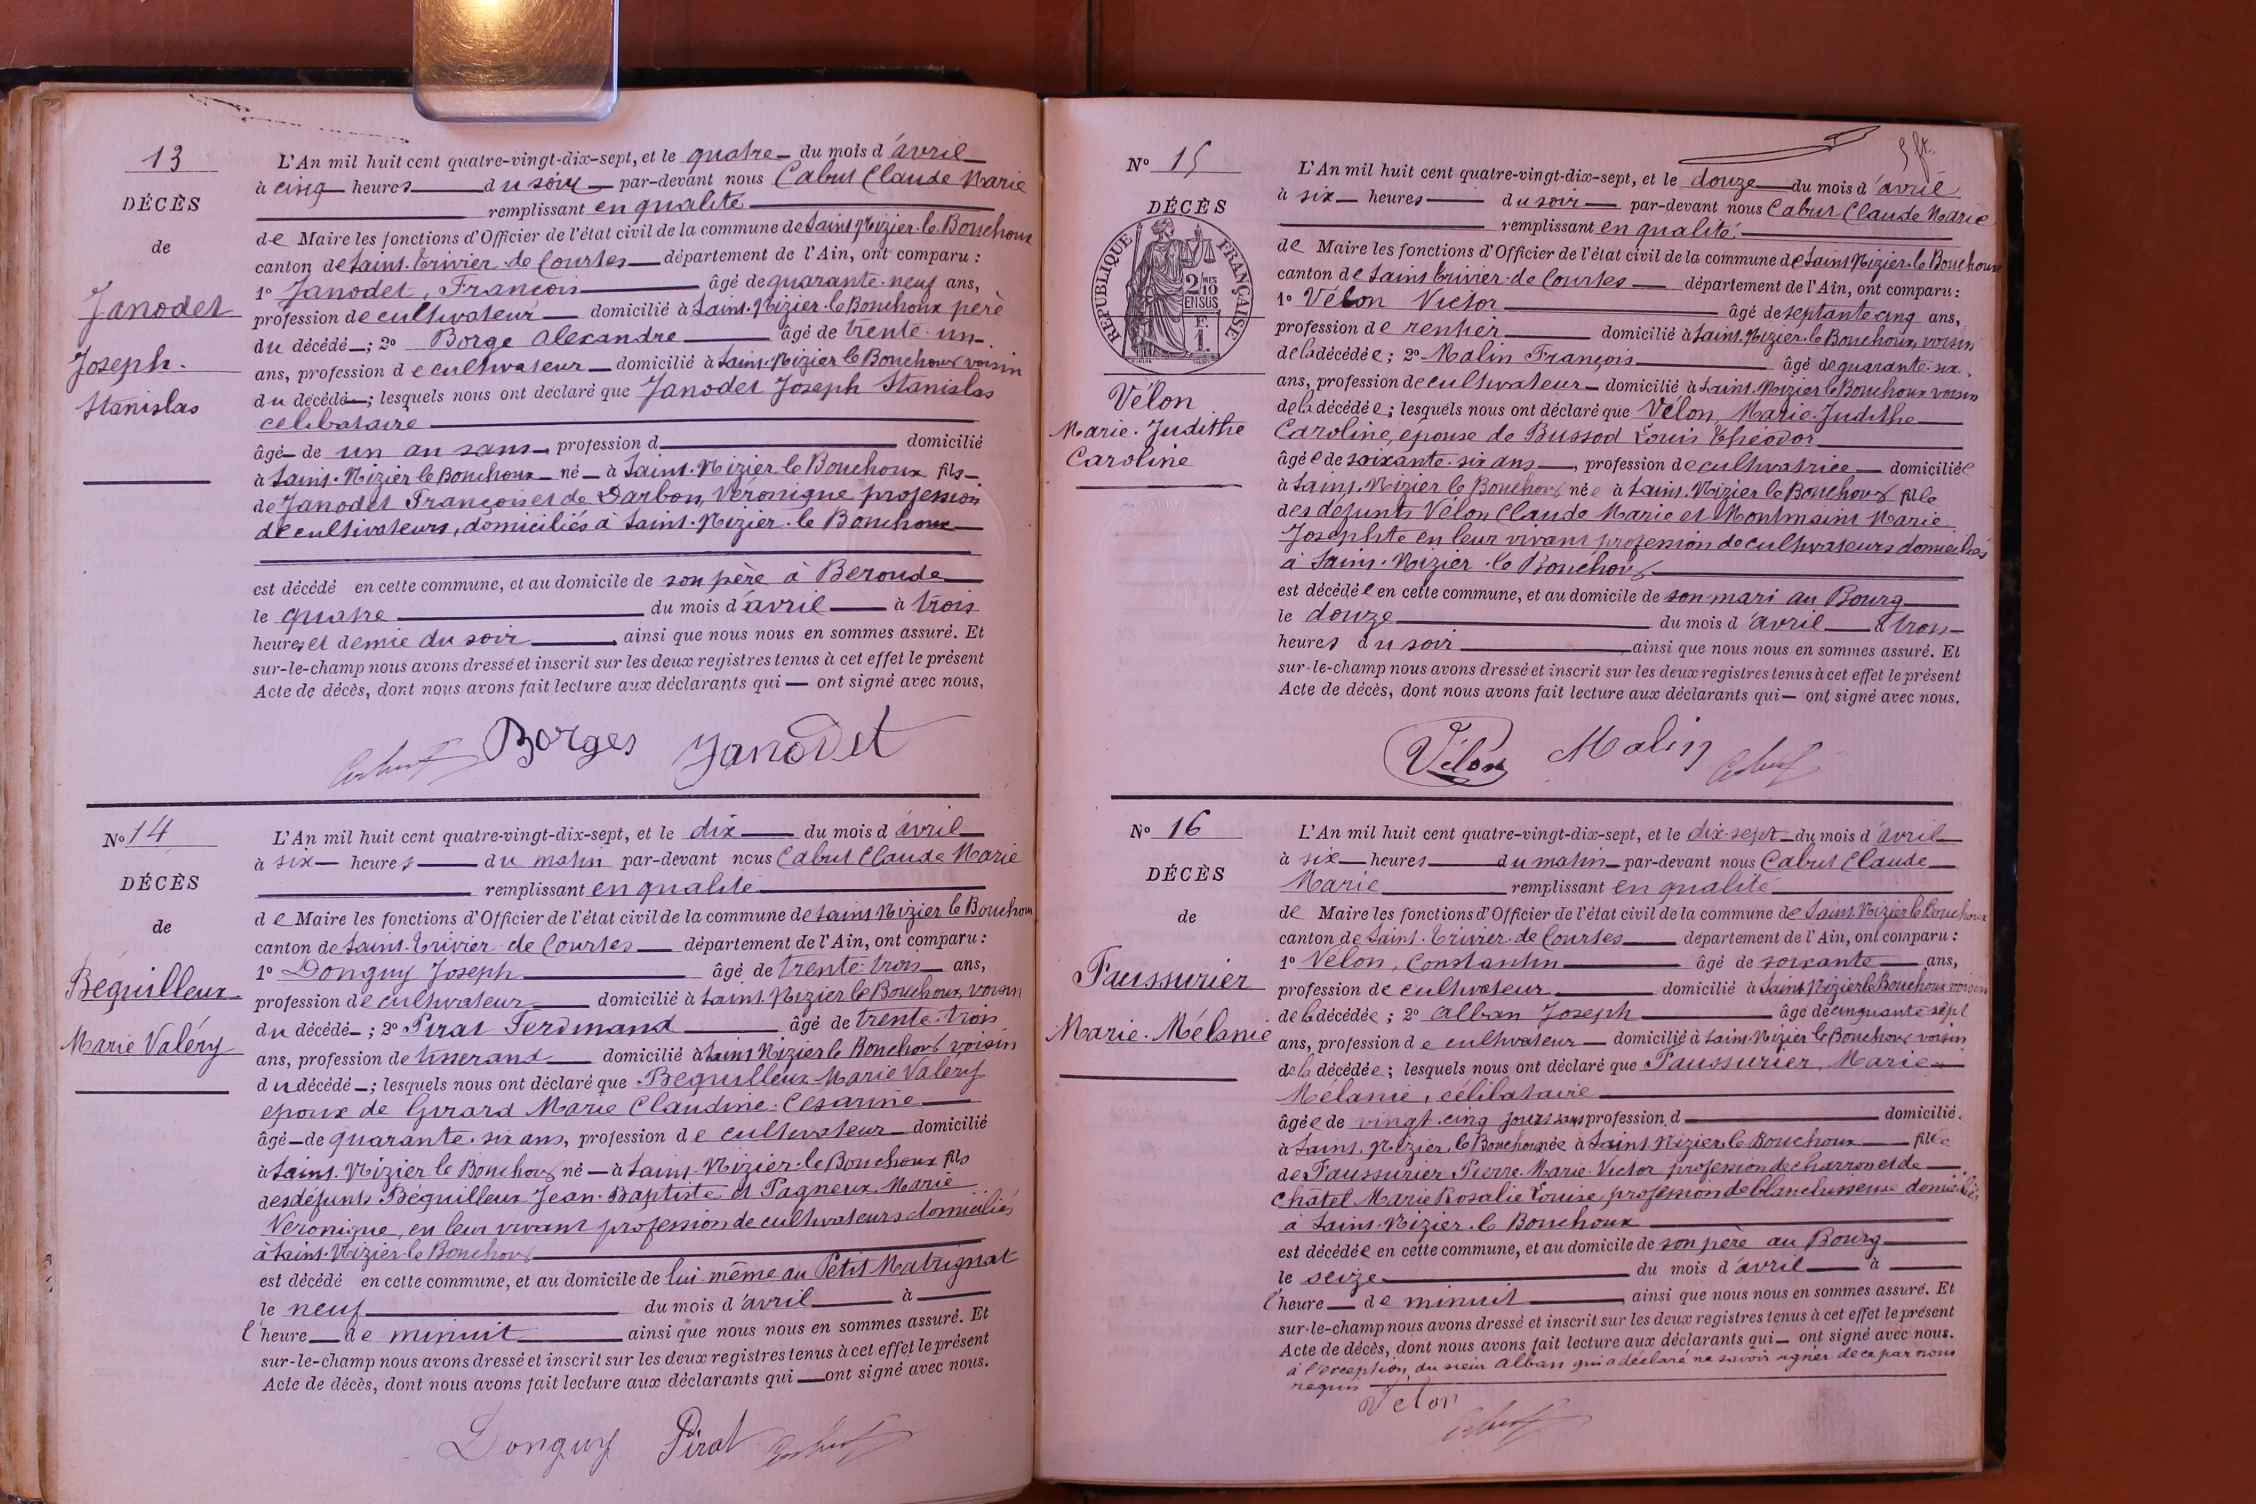 13
DÉCÈS
de
Janodet
Joseph.
Stanislas
L'An mil huit cent quatre-vingt-dix-sept, et le quatre du mois d'avril
à cinq heures du soir par-devant nous Cabut Claude Marie
remplissant en qualité
de Maire les fonctions d'Officier de l'état civil de la commune de Saint Nizier-le Bouchoux
canton de Saint-Trivier-de Courtes département de l'Ain, ont comparu :
1° Janodet, François âgé de quarante-neuf ans,
profession de cultivateur domicilié à Saint-Nizier-le Bouchoux père
du décédé ; 2° Borge Alexandre âgé de trente-un
ans, profession de cultivateur domicilié à Saint-Nizier le Bouchoux voisin
du décédé ; lesquels nous ont déclaré que Janodet Joseph Stanislas
célibataire
âgé de un an sans profession d domicilié
à Saint-Nizier le Bouchoux né à Saint-Nizier le Bouchoux fils
de Janodet François et de Darbon, Véronique profession
de cultivateurs, domiciliés à Saint-Nizier-le Bouchoux
est décédé en cette commune, et au domicile de son père à Beroude
le quatre du mois d'avril à trois
heures et demie du soir ainsi que nous nous en sommes assuré. Et
sur-le-champ nous avons dressé et inscrit sur les deux registres tenus à cet effet le présent
Acte de décès, dont nous avons fait lecture aux déclarants qui ont signé avec nous,
Cabut Borges Janodet
N° 14
DÉCÈS
de
Béguilleux
Marie Valéry
L'An mil huit cent quatre-vingt-dix-sept, et le dix du mois d'avril
à six heures du matin par-devant nous Cabut Claude Marie
remplissant en qualité
de Maire les fonctions d'Officier de l'état civil de la commune de Saint Nizier le Bouchoux
canton de Saint-Trivier-de Courtes département de l'Ain, ont comparu :
1° Donguy Joseph âgé de trente-trois ans,
profession de cultivateur domicilié à Saint-Nizier le Bouchoux, voisin
du décédé ; 2° Pirat Ferdinand âgé de trente-trois
ans, profession de tisserand domicilié à Saint Nizier le Bouchoux voisin
du décédé ; lesquels nous ont déclaré que Béguilleux Marie Valéry
époux de Girard Marie Claudine-Césarine
âgé de quarante-six ans, profession de cultivateur domicilié
à Saint-Nizier le Bouchoux né à Saint-Nizier-le Bouchoux fils
des défunts Béguilleux Jean-Baptiste et Pagneux Marie
Véronique, en leur vivant profession de cultivateurs domiciliés
à Saint-Nizier-le Bouchoux
est décédé en cette commune, et au domicile de lui-même au Petit Matrignat
le neuf du mois d'avril à
l'heure de minuit ainsi que nous nous en sommes assuré. Et
sur-le-champ nous avons dressé et inscrit sur les deux registres tenus à cet effet le présent
Acte de décès, dont nous avons fait lecture aux déclarants qui ont signé avec nous.
Donguy Pirat Cabut
5 fr.
N° 15
DÉCÈS
RÉPUBLIQUE FRANÇAISE
2/10 MES
EN SUS
F.
1.
Vélon
Marie-Judithe
Caroline
L'An mil huit cent quatre-vingt-dix-sept, et le douze du mois d'avril
à six heures du soir par-devant nous Cabut Claude Marie
remplissant en qualité
de Maire les fonctions d'Officier de l'état civil de la commune de Saint Nizier-le Bouchoux
canton de Saint Trivier-de Courtes département de l'Ain, ont comparu :
1° Vélon Victor âgé de septante cinq ans,
profession de rentier domicilié à Saint-Nizier-le Bouchoux, voisin
de la décédée ; 2° Malin François âgé de quarante-six
ans, profession de cultivateur domicilié à Saint-Nizier le Bouchoux voisin
de la décédée ; lesquels nous ont déclaré que Vélon, Marie-Judithe
Caroline, épouse de Bussod Louis Théodor
âgée de soixante-six ans, profession de cultivatrice domiciliée
à Saint-Nizier le Bouchoux née à Saint-Nizier le Bouchoux fille
des défunts Vélon Claude Marie et Montmaint Marie
Josephte en leur vivant profession de cultivateurs domiciliés
à Saint-Nizier-le Bouchoux
est décédée en cette commune, et au domicile de son mari au Bourg
le douze du mois d'avril à trois
heures du soir ainsi que nous nous en sommes assuré. Et
sur-le-champ nous avons dressé et inscrit sur les deux registres tenus à cet effet le présent
Acte de décès, dont nous avons fait lecture aux déclarants qui ont signé avec nous.
Vélon Malin Cabut
N° 16
DÉCÈS
de
Faussurier
Marie-Mélanie
L'An mil huit cent quatre-vingt-dix-sept, et le dix-sept du mois d'avril
à six heures du matin par-devant nous Cabut Claude
Marie remplissant en qualité
de Maire les fonctions d'Officier de l'état civil de la commune de Saint Nizier le Bouchoux
canton de Saint-Trivier-de Courtes département de l'Ain, ont comparu :
1° Vélon, Constantin âgé de soixante ans,
profession de cultivateur domicilié à Saint Nizier le Bouchoux voisin
de la décédée ; 2° Alban Joseph âgé de cinquante sept
ans, profession de cultivateur domicilié à Saint-Nizier le Bouchoux voisin
de la décédée ; lesquels nous ont déclaré que Faussurier, Marie
Mélanie, célibataire
âgée de vingt-cinq jours sans profession d domicilié
à Saint-Nizier-le Bouchoux née à Saint-Nizier-le Bouchoux fille
de Faussurier Pierre-Marie-Victor profession de charron et de
Châtel Marie Rosalie Louise, profession de blanchisseuse domiciliés
à Saint-Nizier-le Bouchoux
est décédée en cette commune, et au domicile de son père au Bourg
le seize du mois d'avril à
l'heure de minuit ainsi que nous nous en sommes assuré. Et
sur-le-champ nous avons dressé et inscrit sur les deux registres tenus à cet effet le présent
Acte de décès, dont nous avons fait lecture aux déclarants qui ont signé avec nous.
à l'exception du sieur Alban qui a déclaré ne savoir signer de ce par nous
requis
Velon
Cabut